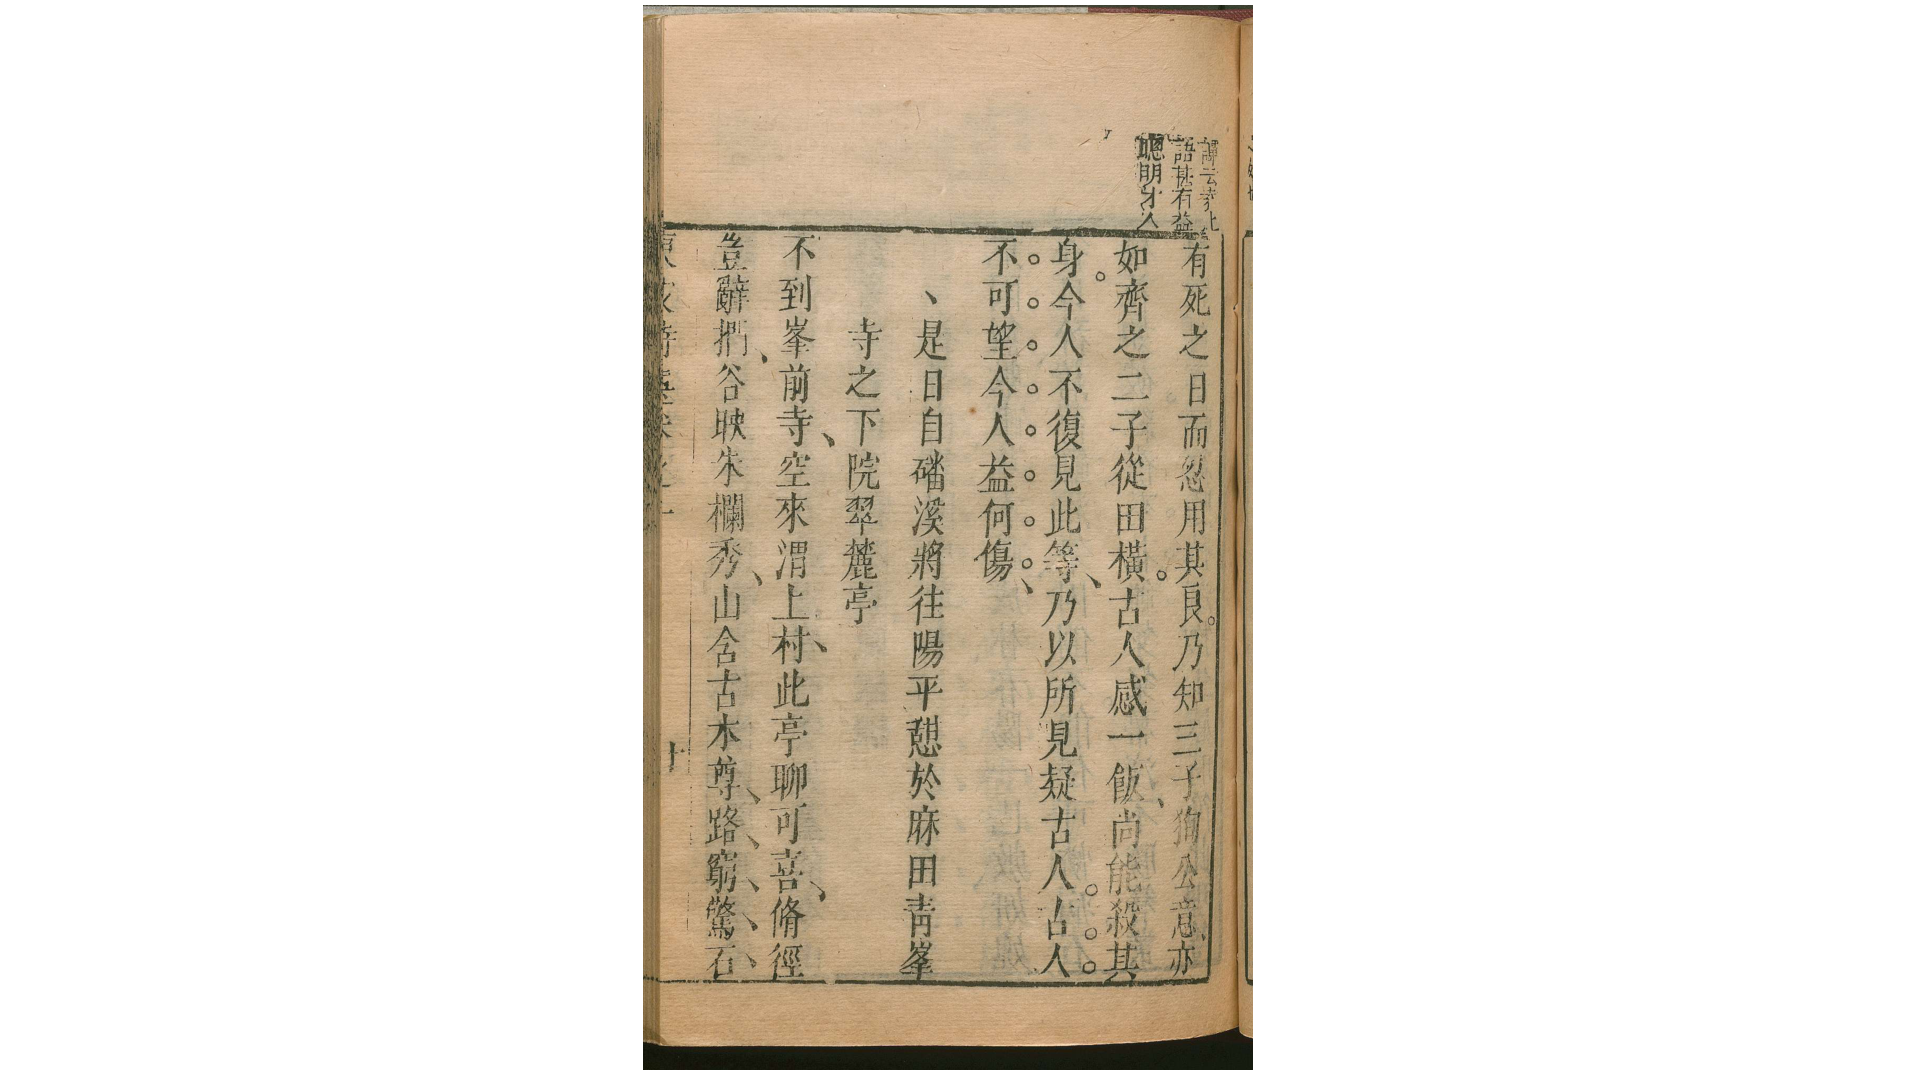 語甚有益
聰明才人
有死之日而忍用其良乃知三子狥公意亦
如齊之二子從田橫古人感一飯尚能殺其
身今人不復見此等乃以所見疑古人古人
不可望今人益何傷
是日自磻溪將往陽平憩於麻田青峯
寺之下院翠麓亭
不到峯前寺空來渭上村此亭聊可喜脩徑
豈辭捫谷映朱欄秀山含古木尊路窮驚石
十